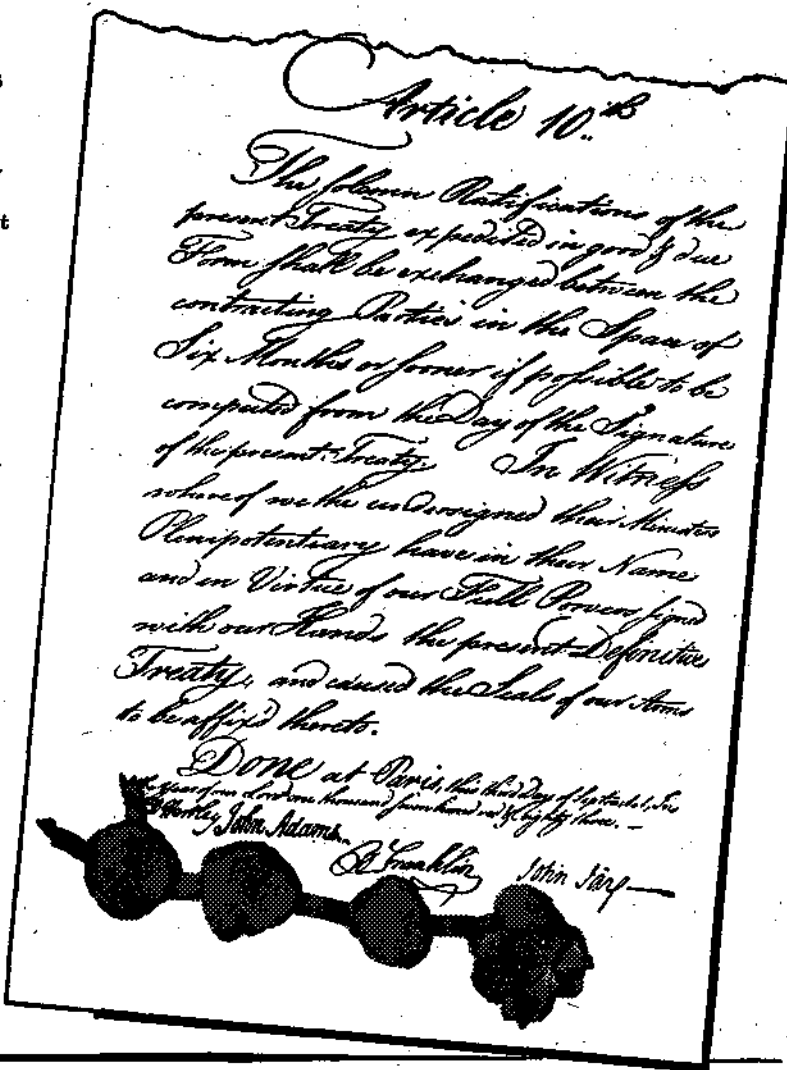 Article 10.th
The solemn Ratifications of the
present Treaty expedited in good & due
Form shall be exchanged between the
contracting Parties in the Space of
Six Months or sooner if possible to be
computed from the Day of the Signature
of the present Treaty. In Witness
whereof we the undersigned their Ministers
Plenipotentiary have in their Name
and in Virtue of our Full Powers signed
with our Hands the present Definitive
Treaty, and caused the Seals of our Arms
to be affix'd thereto.
Done at Paris, this third Day of September, In
the Year of our Lord one thousand seven hundred & eighty three. —
D Hartley John Adams.
B Franklin John Jay —
t